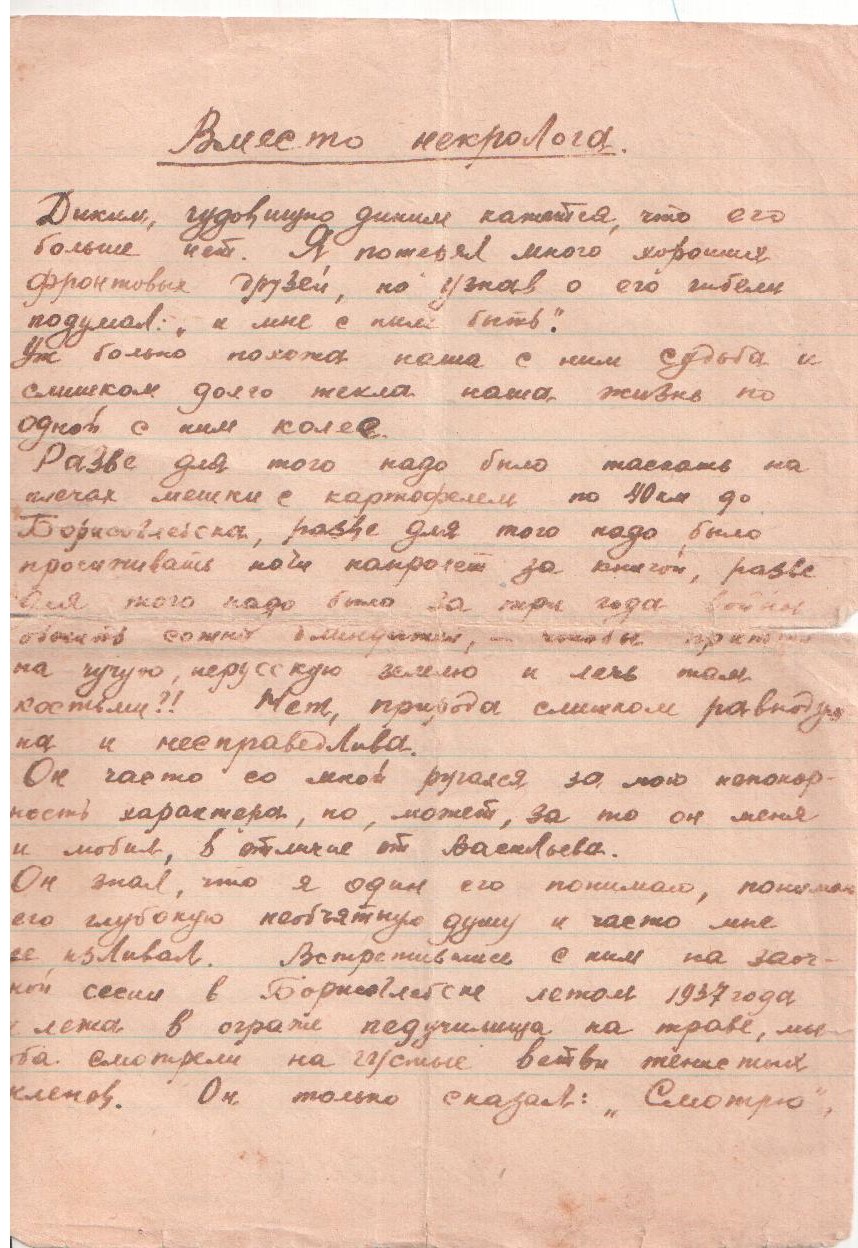 Вместо некролога.
Диким, чудовищно диким кажется, что его
больше нет. Я потерял много хороших
фронтовых друзей, но узнав о его гибели
подумал: „и мне с ним быть".
Уж больно похожа наша с ним судьба и
слишком долго текла наша жизнь по
одной с ним колее.
Разве для того надо было таскать на
плечах мешки с картофелем по 40 км до
Борисоглебска, разве для того надо было
просиживать ночи напролет за книгой, разве
для того надо было за три года войны
сотни блиндажей, – чтобы притти
на чужую, нерусскую землю и лечь там
костьми?! Нет, природа слишком равнодуш
на и несправедлива.
Он часто со мной ругался за мою непокор-
ность характера, но, может, за то он меня
и любил, в отличие от Васильева.
Он знал, что я один его понимаю, понимаю
его глубокую необъятную душу и часто мне
ее изливал. Встретившись с ним на заоч-
ной сесии в Борисоглебске летом 1937 года
и лежа в ограже педучилища на траве, мы
оба смотрели на густые ветви тенистых
кленов. Он только сказал: „Смотрю",